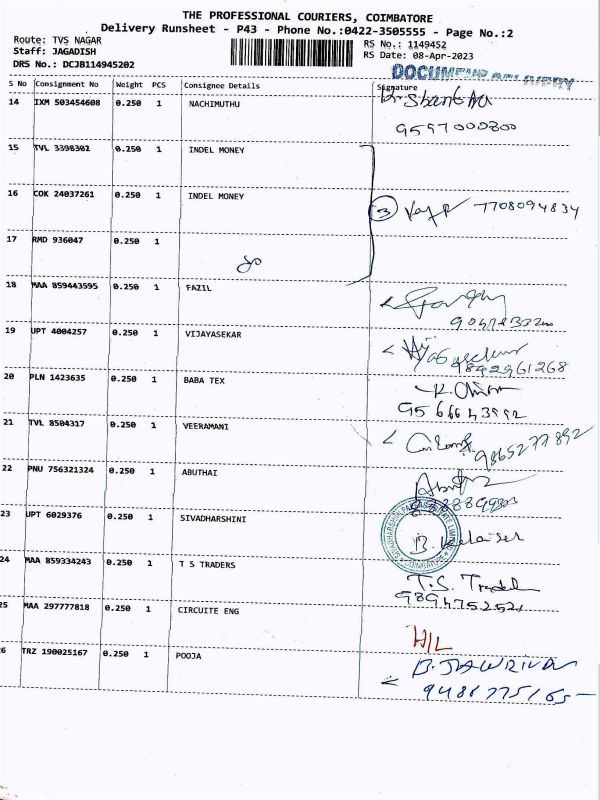 THE PROFESSIONAL COURIERS, COIMBATORE
Delivery Runsheet - P43 - Phone No.:0422-3505555 - Page No.:2
Route: TVS NAGAR
RS No.: 1149452
Staff: JAGADISH
RS Date: 08-Apr-2023
DRS No.: DCJB114945202
DOCUMENT DELIVERY
S No Consignment No Weight PCS Consignee Details Signature
14 IXM 503454608 0.250 1 NACHIMUTHU
9597000800
15 TVL 3398302 0.250 1 INDEL MONEY
16 COK 24037261 0.250 1 INDEL MONEY
3 7708094834
17 RMD 936047 0.250 1
18 MAA 859443595 0.250 1 FAZIL
19 UPT 4004257 0.250 1 VIJAYASEKAR
9842961268
20 PLN 1423635 0.250 1 BABA TEX
9566643992
21 TVL 8504317 0.250 1 VEERAMANI
9865277892
22 PNU 756321324 0.250 1 ABUTHAI
23 UPT 6029376 0.250 1 SIVADHARSHINI
COIMBATORE
24 MAA 859334243 0.250 1 T S TRADERS
T.S. Traders
9894752521
25 MAA 297777818 0.250 1 CIRCUITE ENG
H/L
26 TRZ 190025167 0.250 1 POOJA
9486775165